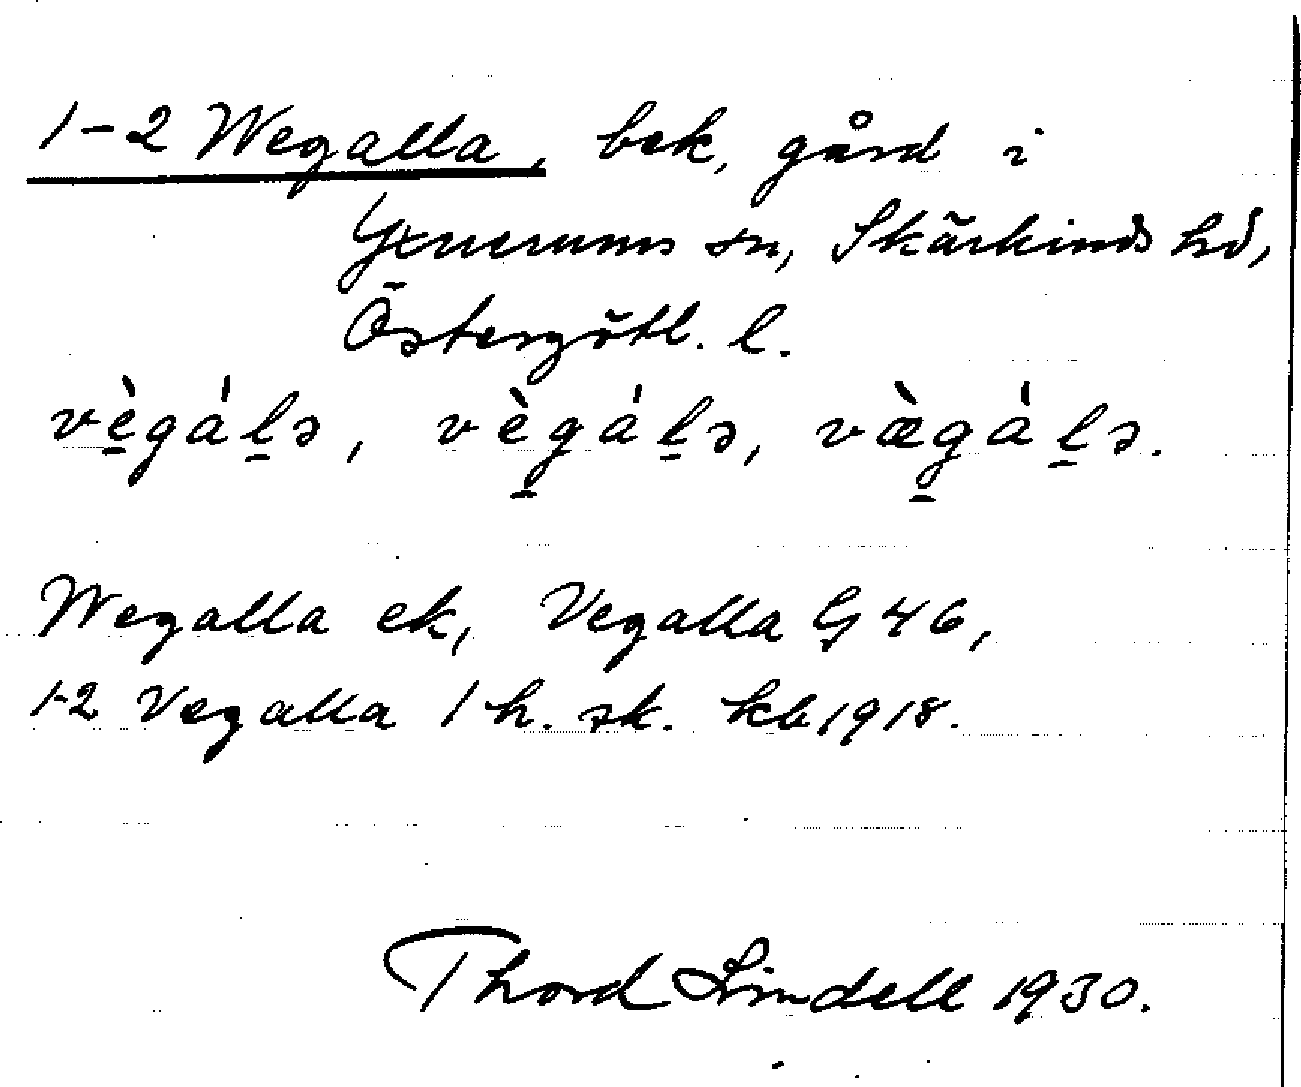 1-2 Wegalla, bek, gård i
Yxnerums sn, Skärkinds hd,
Östergötl. l.
vègálə, vègálə, vægálə.
Wegalla ek, Vegalla G 46,
1-2 Vegalla 1 h. sk. kb 1918.
Thord Lindell 1930.